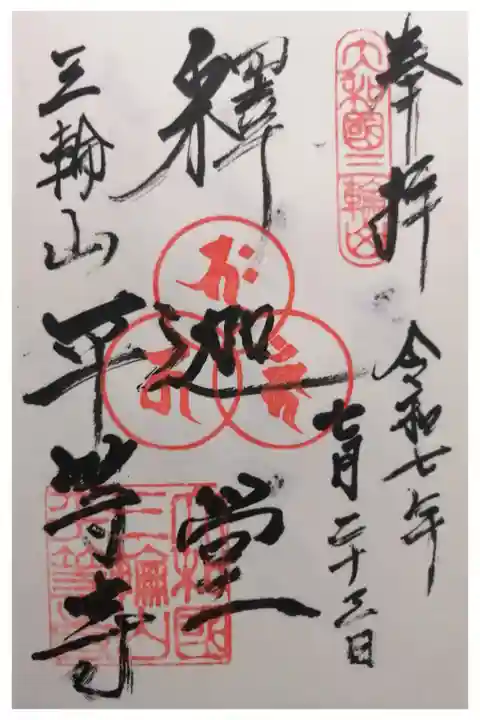 奉拝
令和七年
七月二十三日
大和國三輪山
釋迦堂
三輪山
平等寺
大和國
三輪山
平等寺